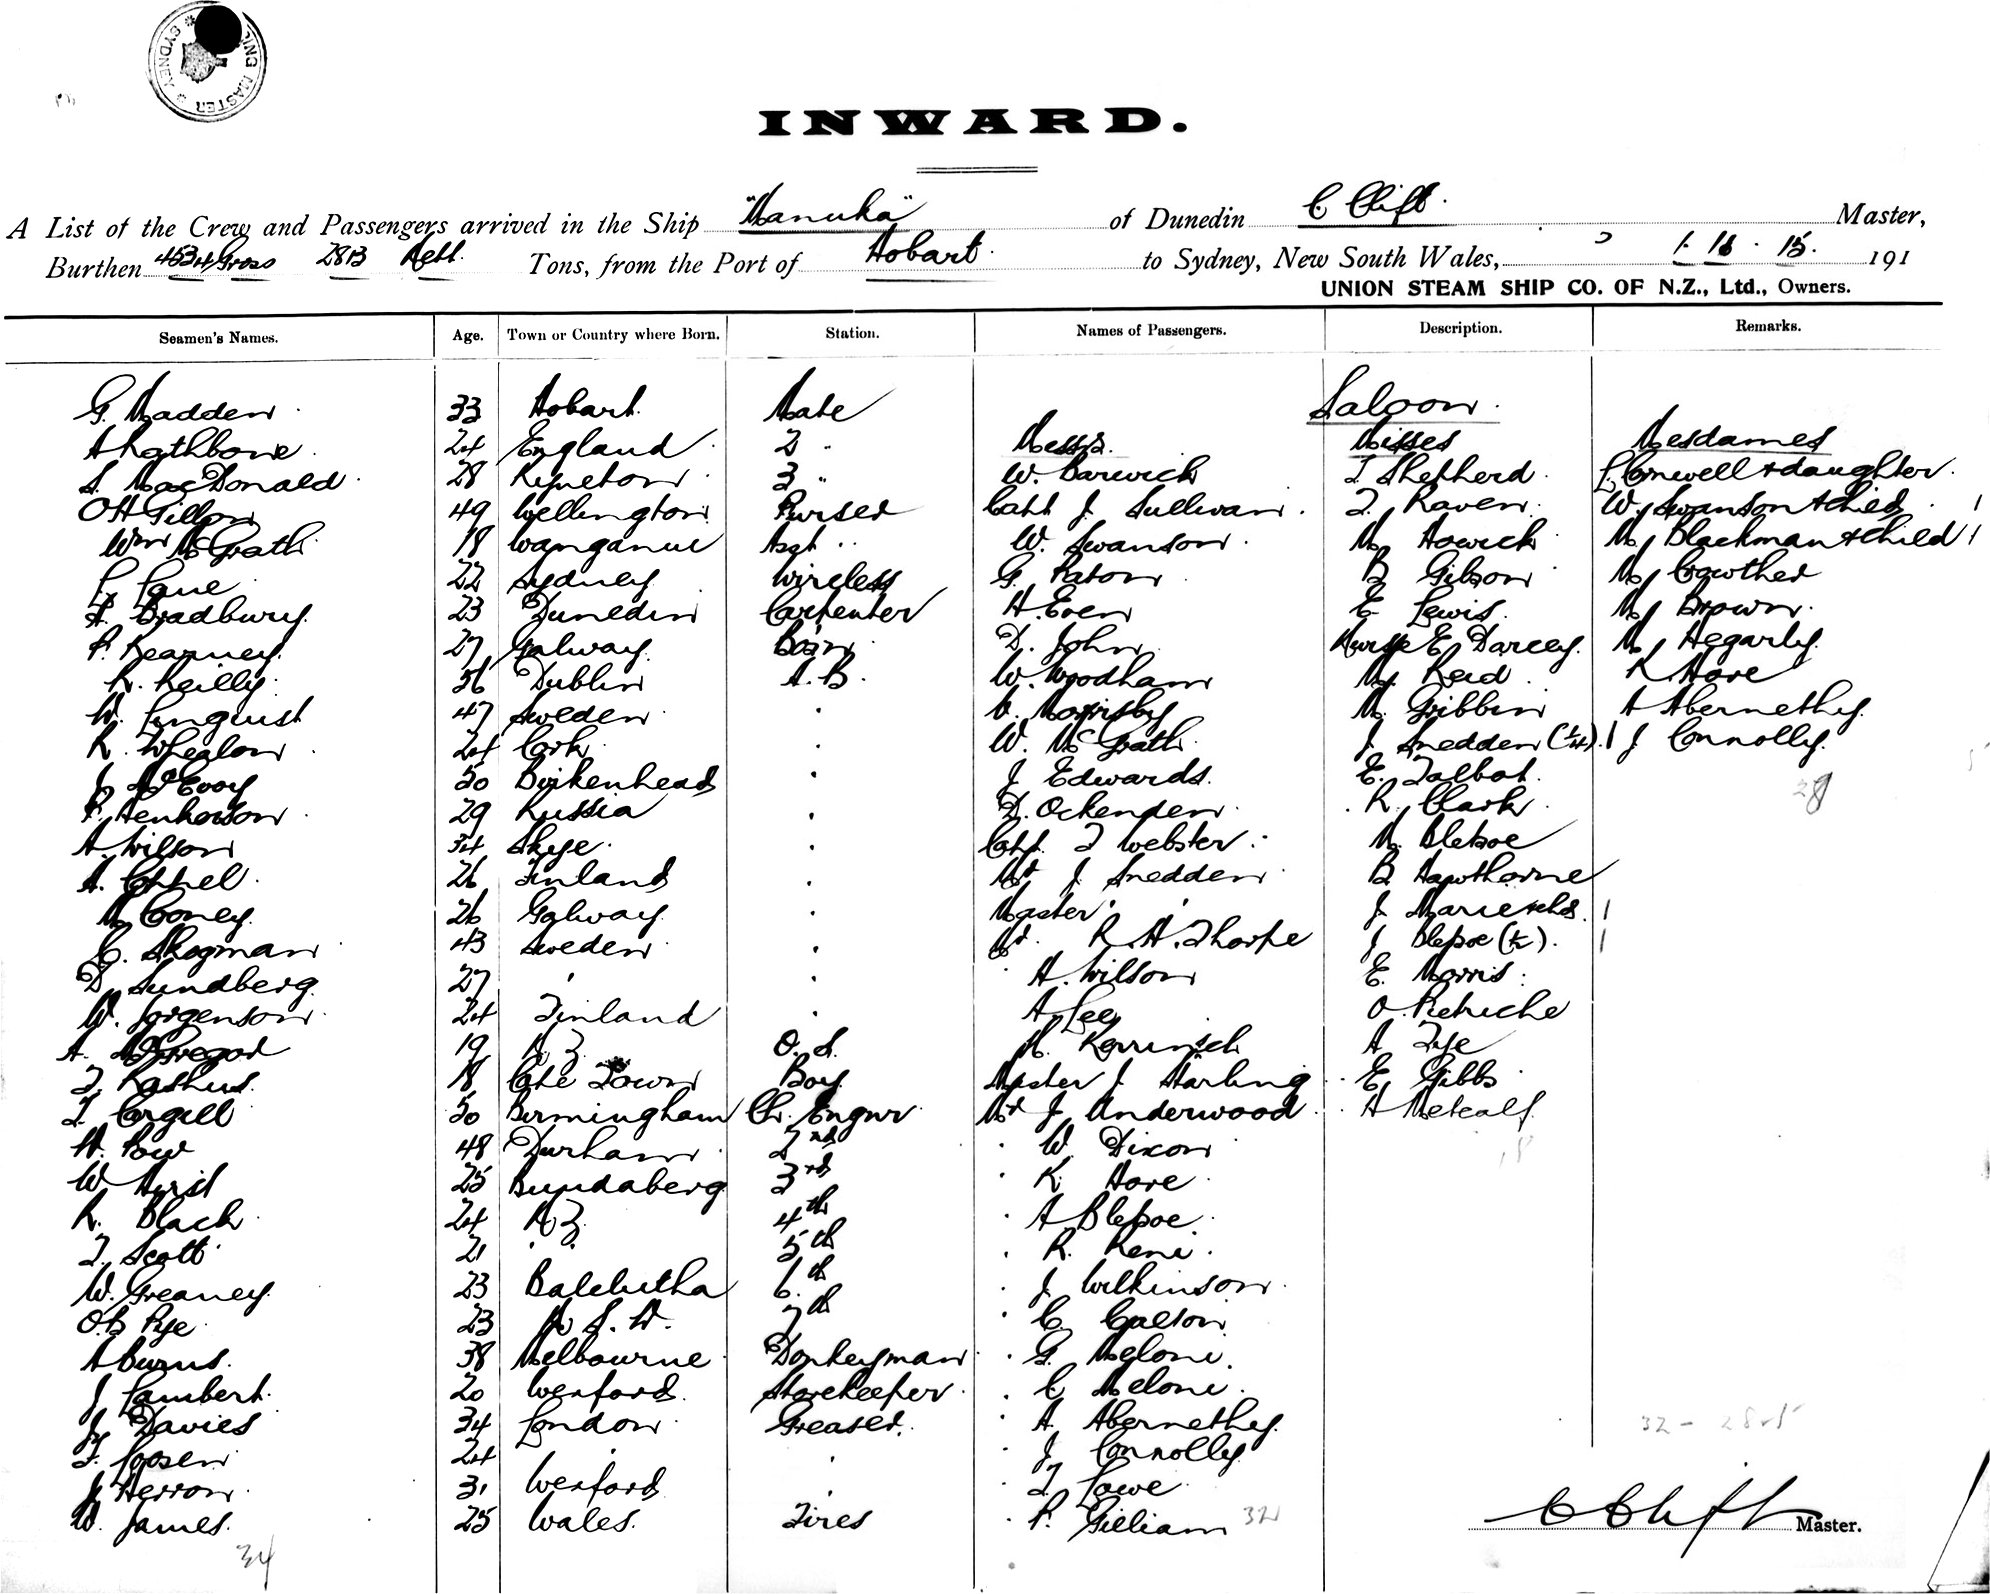 SHIPPING MASTER SYDNEY
INWARD.
A List of the Crew and Passengers arrived in the Ship "Manuka" of Dunedin C Clift. Master,
Burthen 4534 Gross 2813 Nett. Tons, from the Port of Hobart. to Sydney, New South Wales, 1. 11. 15. 191
UNION STEAM SHIP CO. OF N.Z., Ltd., Owners.
Seamen's Names. Age. Town or Country where Born. Station. Names of Passengers. Description. Remarks.
Saloon.
G. Madden 33 Hobart. Mate
A Rathbone 24 England 2 " Messrs. Misses Mesdames
S. MacDonald 28 Kyneton 3 " W. Barwick I Shepherd L Conwell & daughter
O H Gillon 49 Wellington Purser Capt J. Sullivan. I. Raven W. Swanson & child 1
Wm McGrath 18 Wanganui Asst " W. Swanson M Howick M Blackman & Child 1
L Lane 22 Sydney Wireless G. Paton B Gibson M Crowther
F. Bradbury 23 Dunedin Carpenter H. Even E Lewis. M Brown.
P. Kearney 27 Galway Bosn D. John Nurse E. Darcey. M Hegarty
R. Reilly 56 Dublin A. B. W. Woodham M. Reid K Hore
W. Linquist 47 Sweden " M. Gribbin A Abernethy
R. Whealon 24 Cork " W. McGrath J. Snedden (1/4). 1 J Connolly.
J McEvoy 50 Birkenhead " J Edwards. E. Talbot.
P. Henkerson 29 Russia " D. Ockenden R. Clark 28
A Wilson 34 Skye " Capt. T Webster. M. Bleboe
A. Coppel 26 Finland " Mr J. Snedden B Hawthorne
M Coney 26 Galway " Master " " 1
C. Skogman 43 Sweden " Mr. R. H. Thorpe J Bleboe (1/2). 1
D Sundberg 27 " " " H. Wilson E. Morris.
W. Jorgenson 24 Finland " A Lee O.
A. McGregor 19 N Z O. S. A Tye
T Rashus. 18 Cape Town Boy Master J Starling E Gibbs
T. Corgill 50 Birmingham Ch. Engnr Mr J. Underwood H Metcalf
H. Pow 48 Durham 2nd " W. Dixon 18
W Hirst 25 Bundaberg 3rd " K. Hore
R. Black 24 N Z 4th " A Bleboe
T. Scott 21 " " 5th " R. Keni
W. Greaney 23 Balclutha 6th " J Wilkinson
O.B Pye 23 N. S. W. 7th " C.
A Burns. 38 Melbourne Donkeyman " G. Meloni.
J Lambert. 20 Wexford. Storekeeper " C Meloni
J. Davies 34 London Greaser. " A. Abernethy. 32 -
T. Loosen 24 " " " J Connolly
J Herron 31 Wexford " " T. Lowe
W. James. 25 Wales. Fires " P. Gilliam 32 C Clift Master.
34